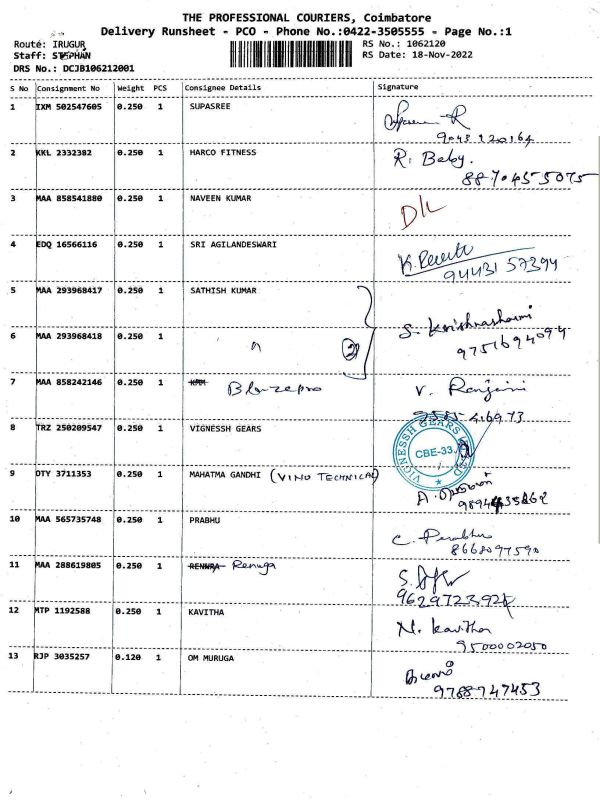 THE PROFESSIONAL COURIERS, Coimbatore
Delivery Runsheet - PCO - Phone No.:0422-3505555 - Page No.:1
Route: IRUGUR RS No.: 1062120
Staff: STEPHAN RS Date: 18-Nov-2022
DRS No.: DCJB106212001
S No Consignment No Weight PCS Consignee Details Signature
1 IXM 502547605 0.250 1 SUPASREE
2 KKL 2332382 0.250 1 HARCO FITNESS R. Baby.
8870455075
3 MAA 858541880 0.250 1 NAVEEN KUMAR D/L
4 EDQ 16566116 0.250 1 SRI AGILANDESWARI
94431 57394
5 MAA 293968417 0.250 1 SATHISH KUMAR
6 MAA 293968418 0.250 1 " 2
9751694094
7 MAA 858242146 0.250 1 V. Ranjani
8 TRZ 250209547 0.250 1 VIGNESSH GEARS VIGNESSH GEARS CBE-33
9 DTY 3711353 0.250 1 MAHATMA GANDHI (VINO TECHNICAL)
10 MAA 565735748 0.250 1 PRABHU C. Prabhu
11 MAA 288619805 0.250 1 Renuga
12 MTP 1192588 0.250 1 KAVITHA N. kavitha
9500002050
13 RJP 3035257 0.120 1 OM MURUGA
9788747453